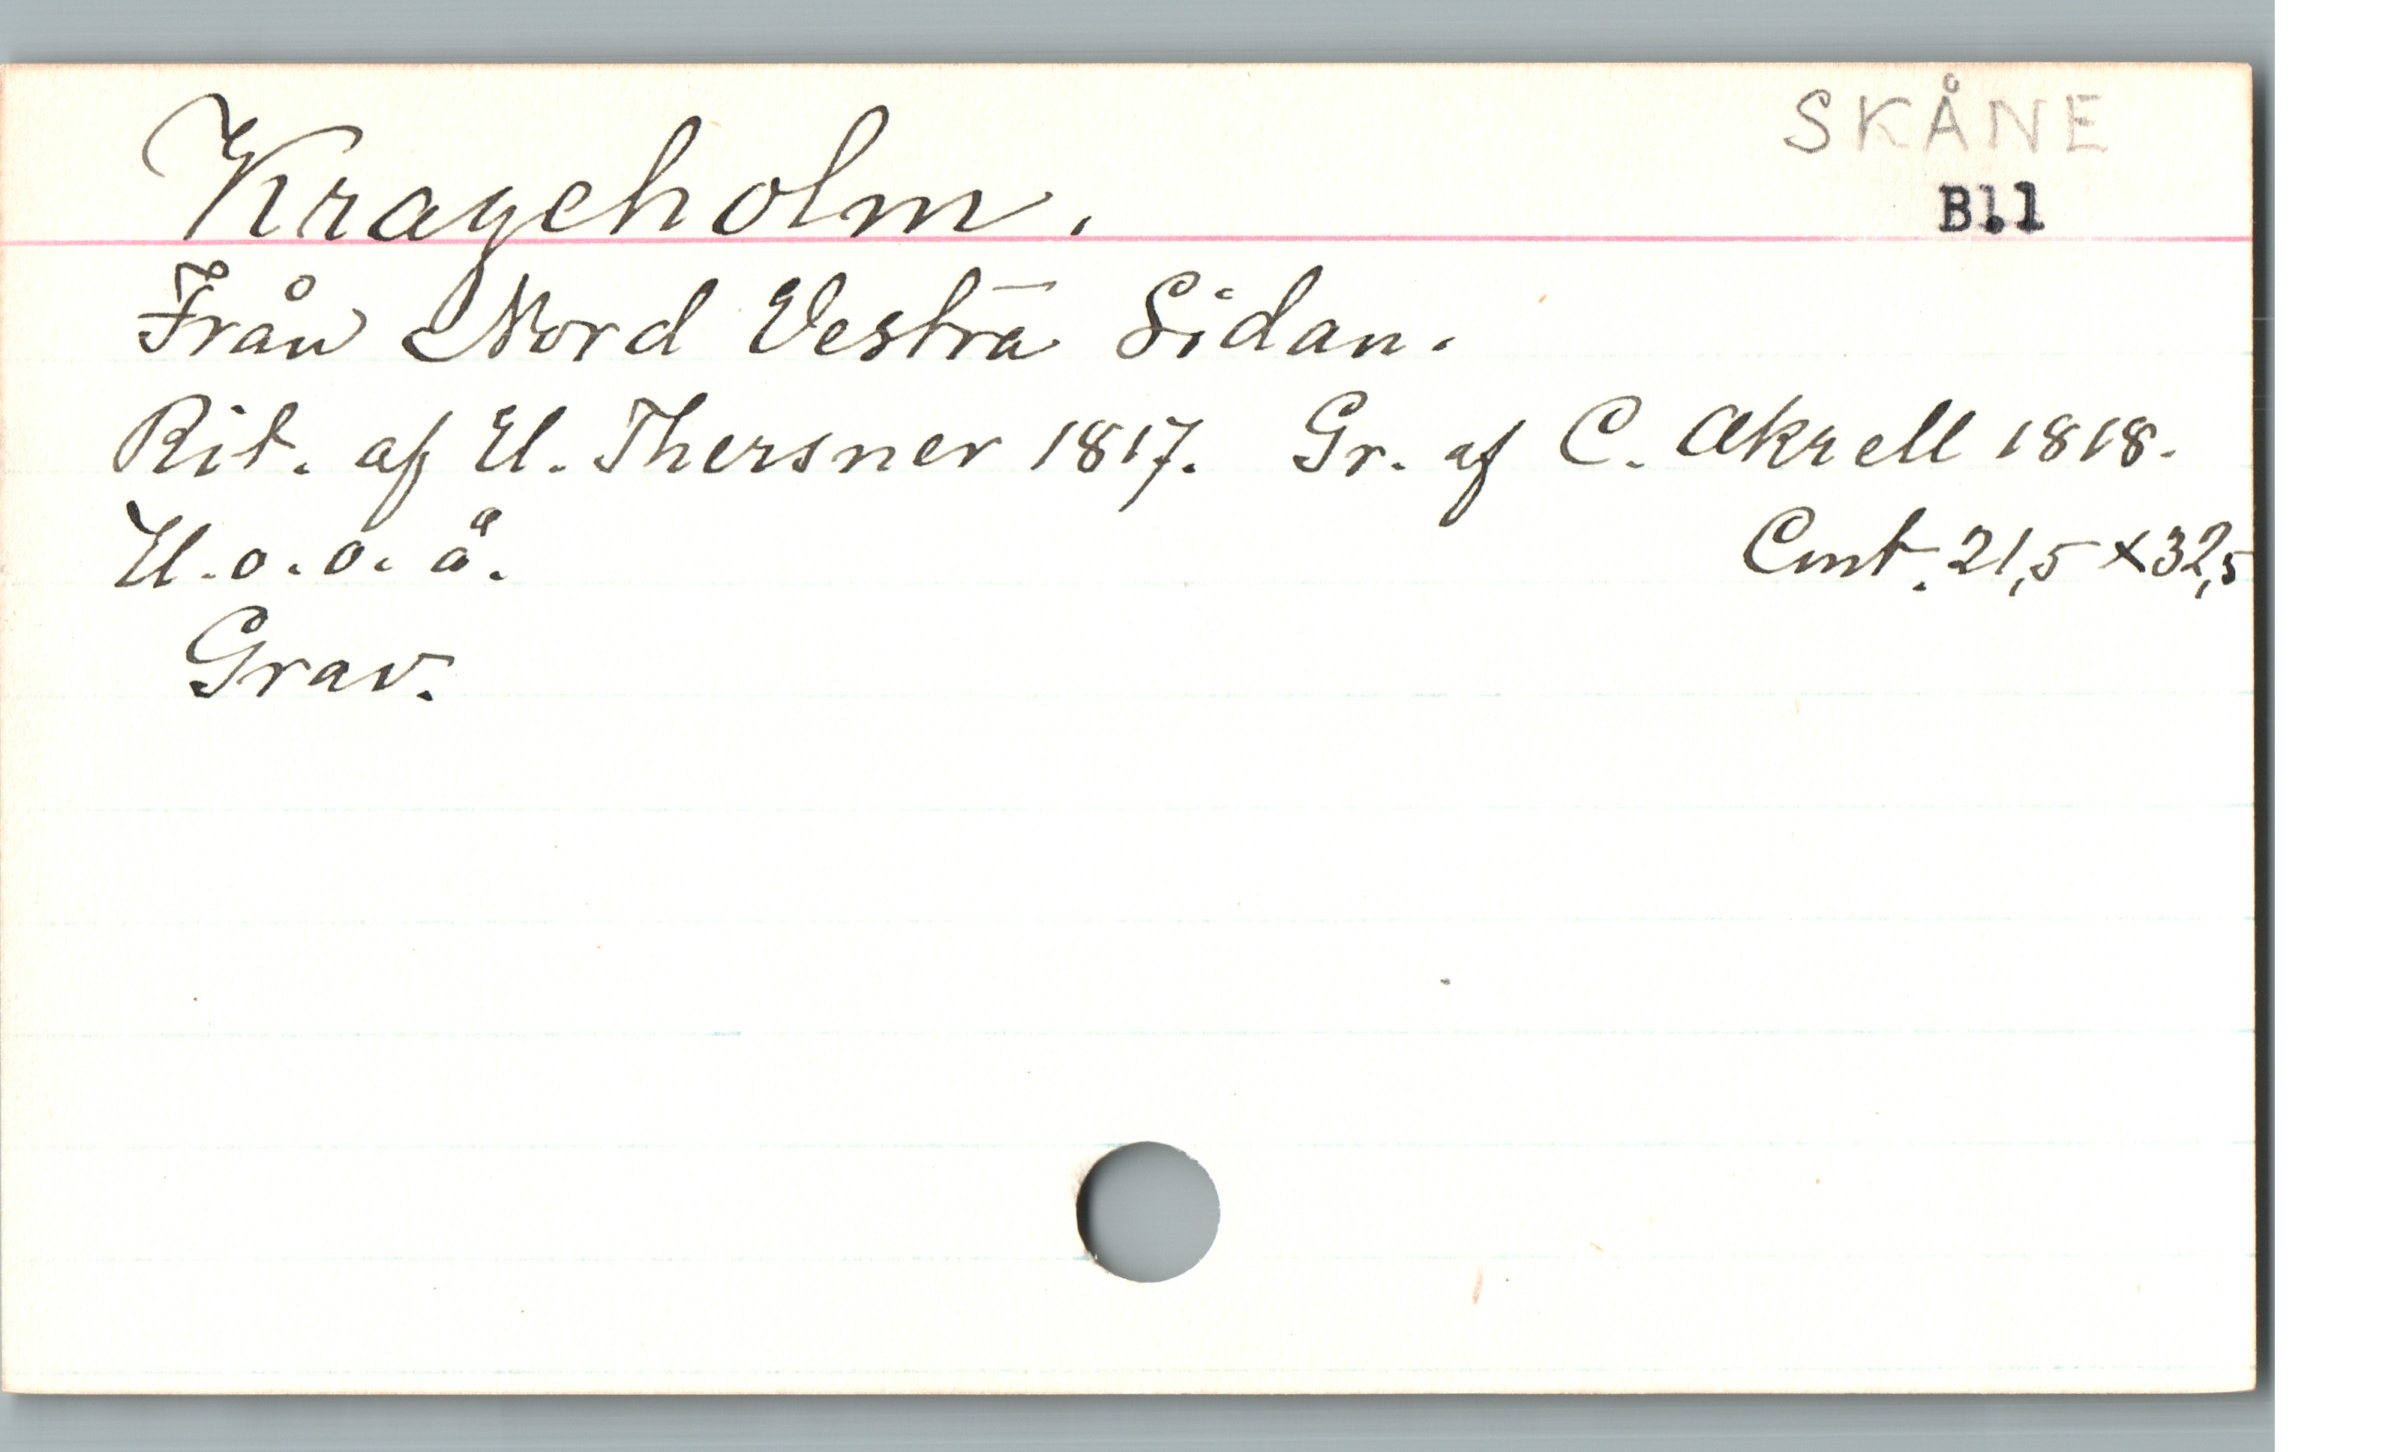 SKÅNE
Krageholm.
Bl.1
Från Nord Vestra Sidan.
Rit. af U. Thersner 1817. Gr. af C. Akrell 1818.
U. o. o. å. Cmt. 21,5 x 32,5
Grav.